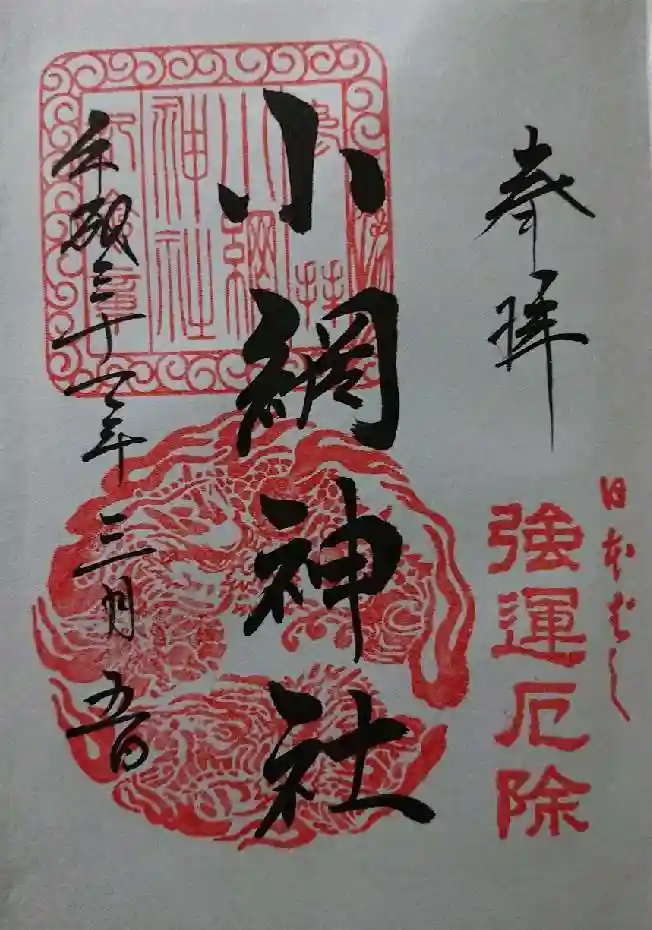 奉拝
日本ばし
強運厄除
小網神社
平成三十一年三月五日
小網
神社